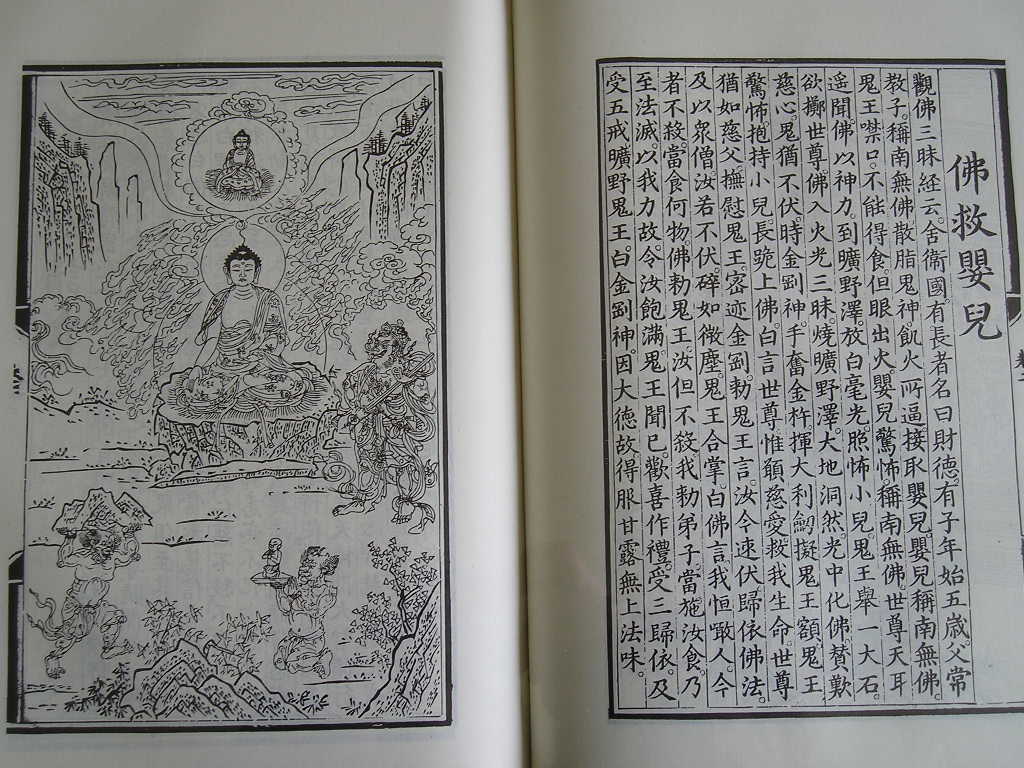 佛救嬰兒
觀佛三昧経云。舍衛國。有長者名曰財德。有子年始五歲。父常
教子。稱南無佛。散脂鬼神飢火所逼。接取嬰兒。嬰兒稱南無佛。
鬼王噤口。不能得食。但眼出火。嬰兒驚怖。稱南無佛。世尊天耳
遥聞。佛以神力。到曠野澤。放白毫光。照怖小兒。鬼王舉一大石。
欲擲世尊。佛入火光三昧。燒曠野澤。大地洞然。光中化佛。賛歎
慈心。鬼猶不伏。時金剛神。手奮金杵。揮大利劒。擬鬼王額。鬼王
驚怖。抱持小兒。長跪上佛。白言世尊。惟願慈愛。救我生命。世尊
猶如慈父。撫慰鬼王。宻迹金剛。勑鬼王言。汝今速伏。歸依佛法。
及以衆僧。汝若不伏。碎如微塵。鬼王合掌。白佛言。我恒噉人。今
者不殺。當食何物。佛勑鬼王。汝但不殺。我勑弟子。當施汝食。乃
至法滅。以我力故。令汝飽滿。鬼王聞已。歡喜作禮。受三歸依。及
受五戒。曠野鬼王。白金剛神。因大德故。得服甘露無上法味。